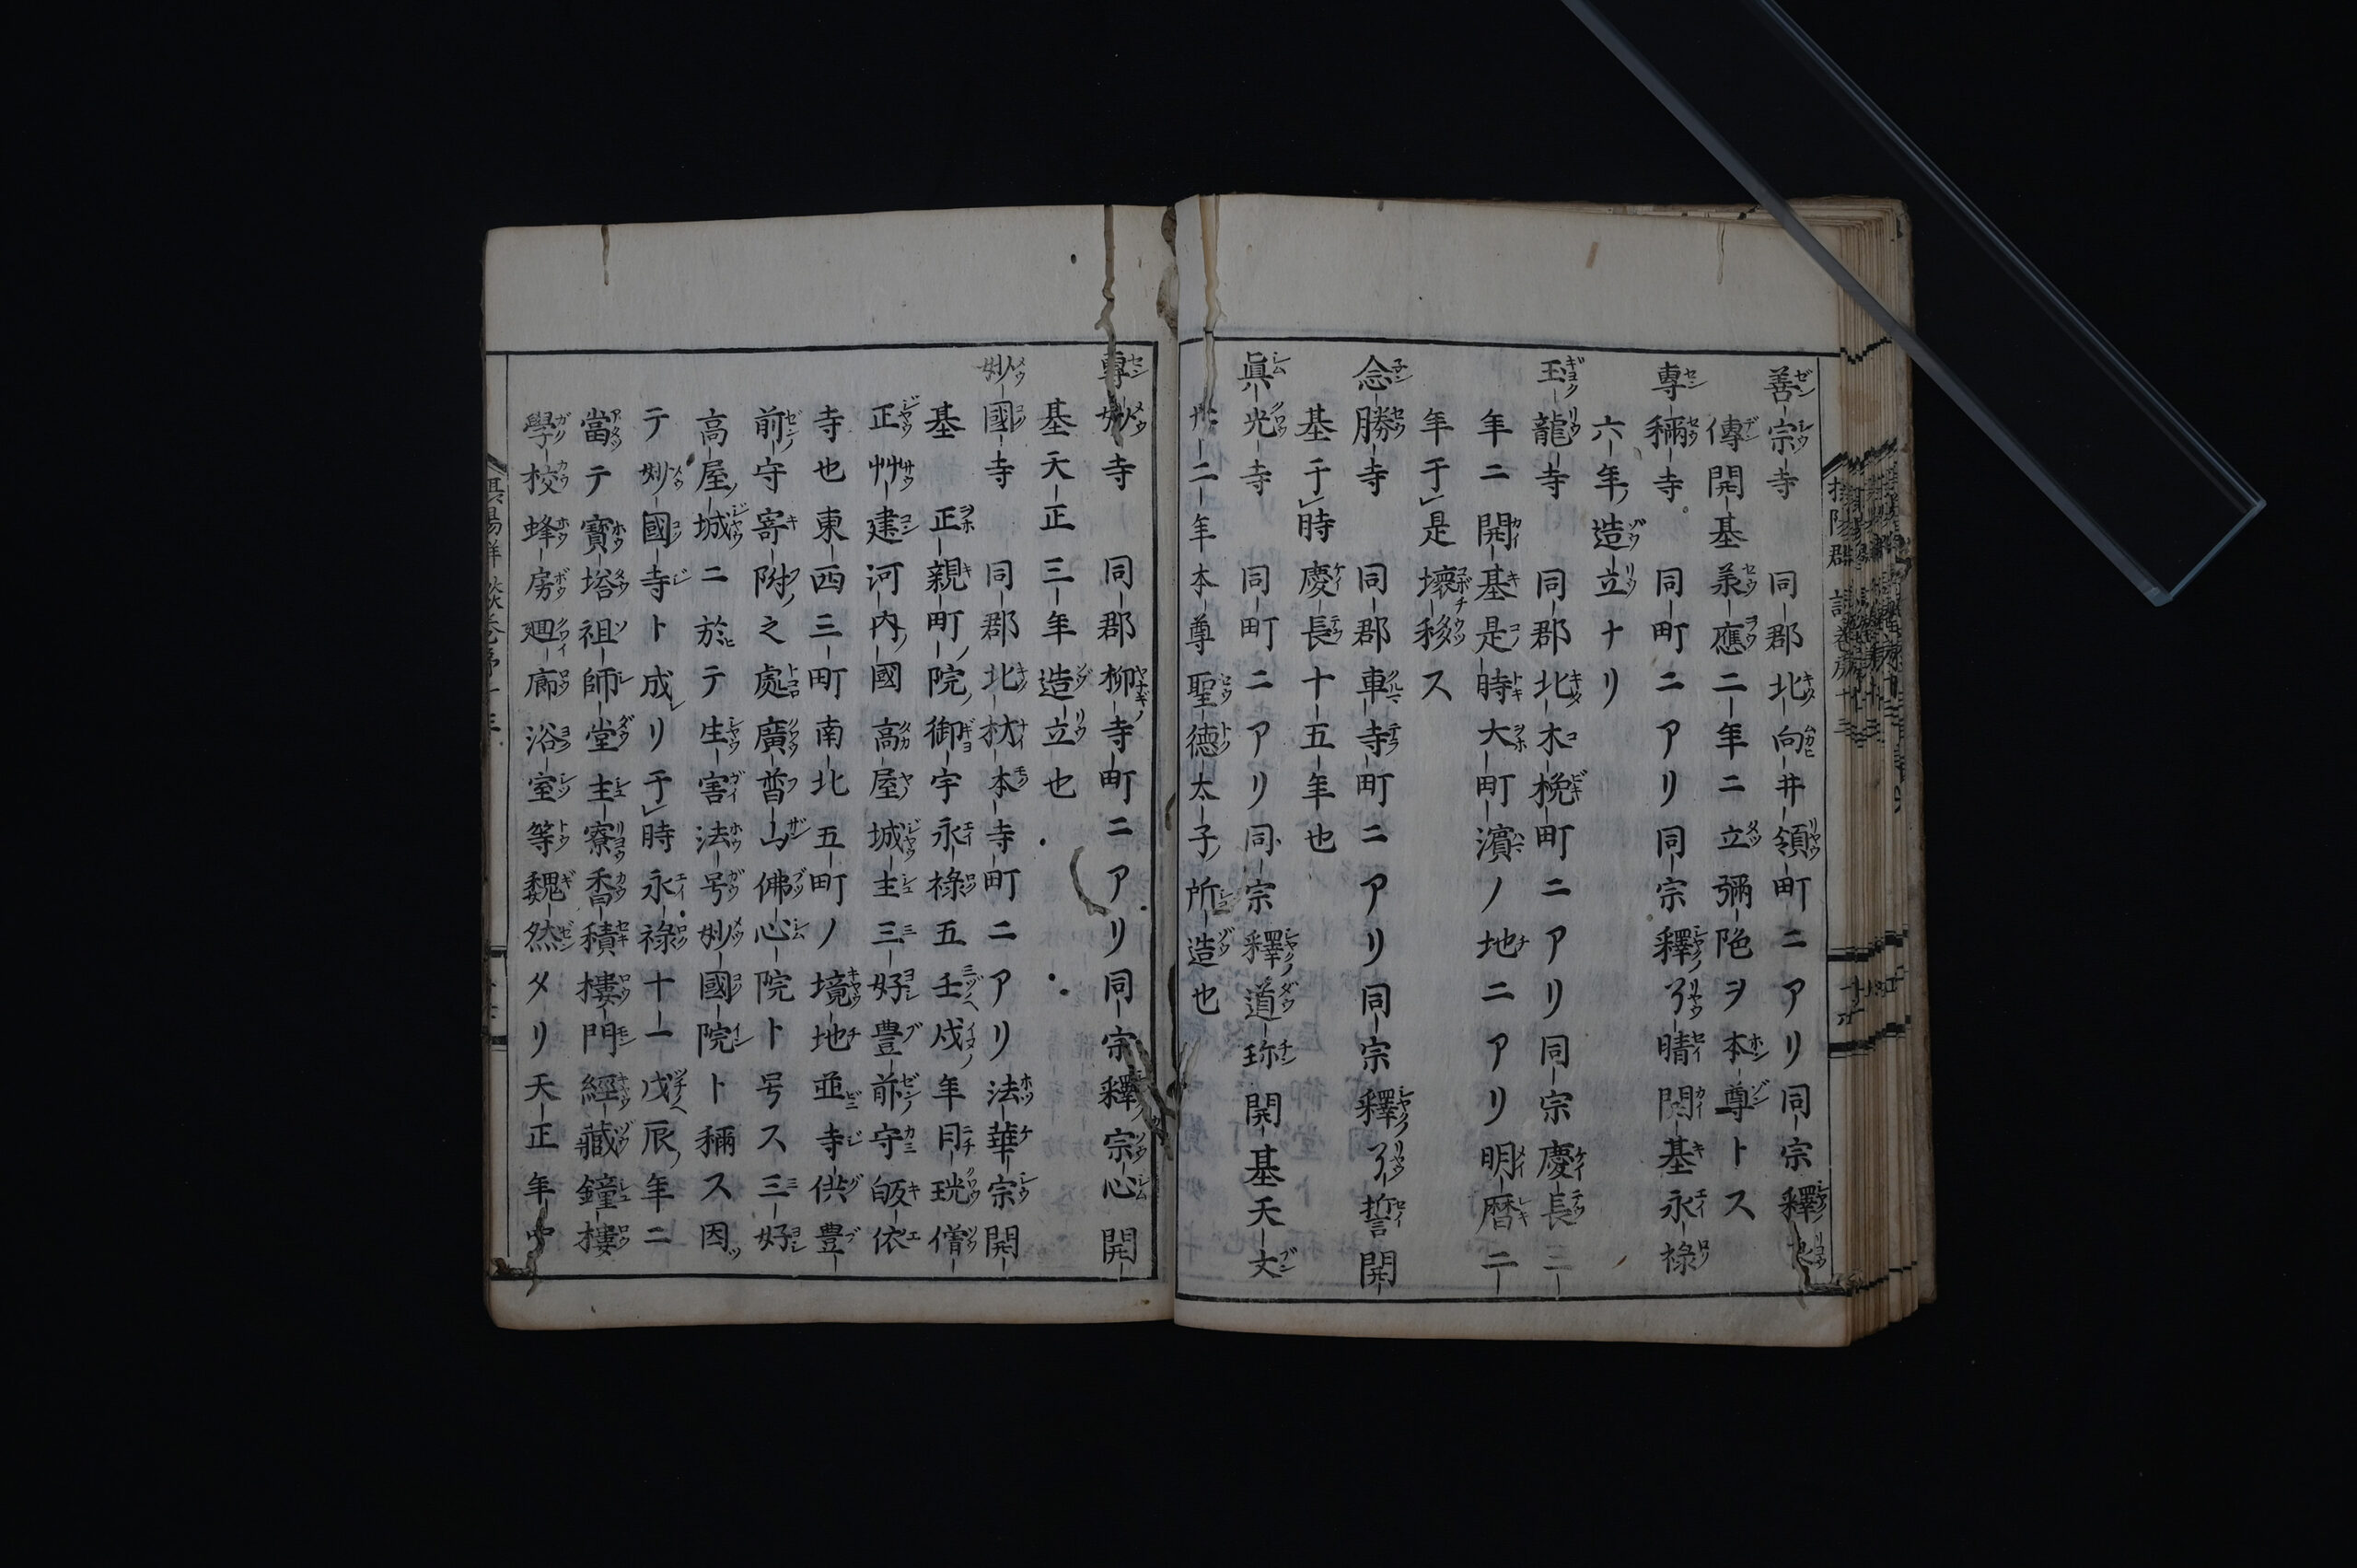 善宗寺 同郡北向井領町ニアリ同宗釋
傳開基承應二年ニ立彌陀ヲ本尊トス
專稱寺 同町ニアリ同宗釋了晴開基永祿
六年ノ造立ナリ
玉龍寺 同郡北木挽町ニアリ同宗慶長二
年ニ開基是時大町濱ノ地ニアリ明暦二
年于是壞移ス
念勝寺 同郡車寺町ニアリ同宗釋了誓開
基于時慶長十五年也
眞光寺 同町ニアリ同宗釋道珎開基天文
二年本尊聖徳太子ノ所造也
專妙寺 同郡柳寺町ニアリ同宗釋宗心開
基天正三年造立也
妙國寺 同郡北材木寺町ニアリ法華宗開
基正親町ノ院ノ御宇永祿五壬戌年日珖僧
正艸建河内ノ國高屋城主三好豊前守皈依
寺也東西三町南北五町ノ境地並寺供豊
前守寄附ノ之處廣普山佛心院ト号ス三好
高屋ノ城ニ於テ生害法号妙國院ト稱ス因ツ
テ妙國寺ト成レリ于時永祿十一戊辰ノ年ニ
當テ寶塔祖師堂主寮香積樓門經藏鐘樓
學校蜂房廻廊浴室等魏然タリ天正年中